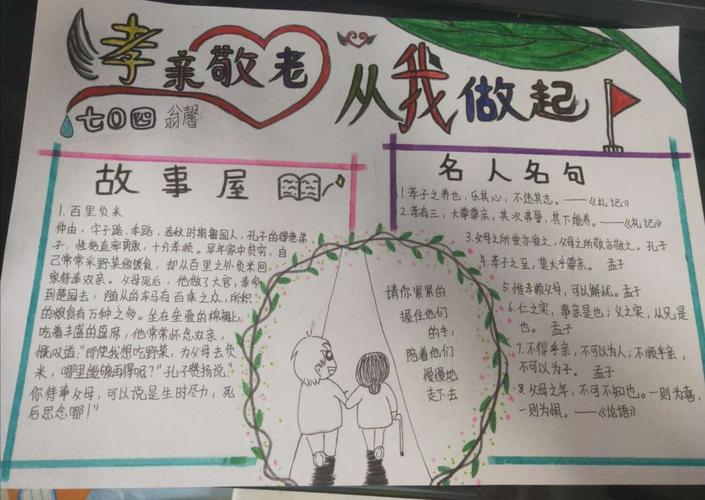 孝亲敬老 从我做起
七〇四 翁馨
故事屋
1.百里负米
仲由,字子路、季路,春秋时期鲁国人,孔子的得意弟
子,性格直率勇敢,十分孝顺。早年家中贫穷,自
己常常采野菜做饭食,却从百里之外负米回
家侍奉双亲。父母死后,他做了大官,奉命
到楚国去,随从的车马有百乘之众,所积
的粮食有万钟之多。坐在垒叠的锦褥上,
吃着丰盛的筵席,他常常怀念双亲,
慨叹道:"即使我想吃野菜,为父母去负
米,哪里能够再得呢?"孔子赞扬说:"
你侍事父母,可以说是生时尽力,死
后思念哪!"
请你紧紧的
握住他们
的手,
陪着他们
慢慢地
走下去
名人名句
1.孝子之养也,乐其心,不违其志。——《礼记》
2.孝有三,大尊尊亲,其次弗辱,其下能养。——《礼记》
3.父母之所爱亦爱之,父母之所敬亦敬之。孔子
4.孝子之至,莫大乎尊亲。 孟子
5.惟孝顺父母,可以解忧。孟子
6.仁之实,事亲是也;义之实,从兄是
也。 孟子
7.不得乎亲,不可以为人;不顺乎亲,
不可以为子。 孟子
8.父母之年,不可不知也。一则为喜,
一则为惧。——《论语》